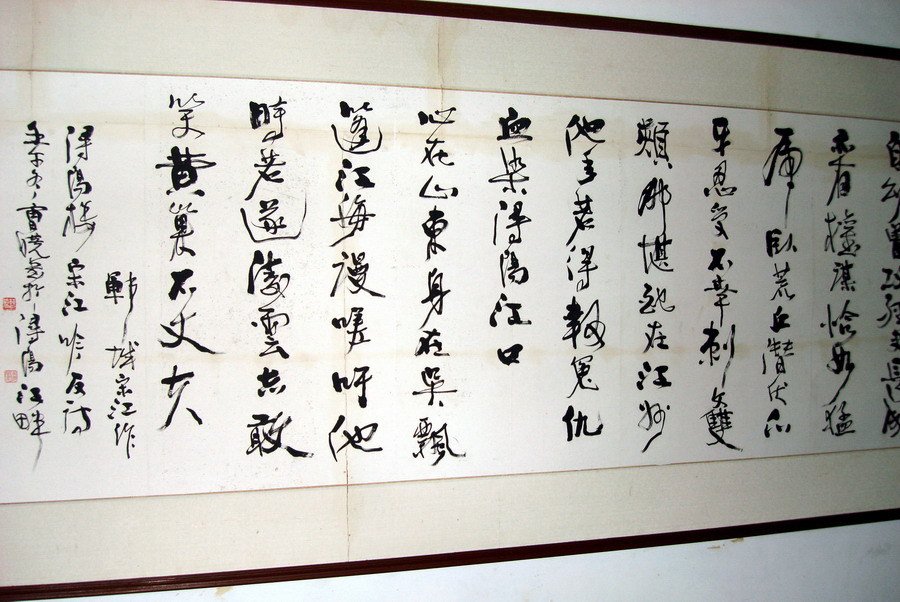 自幼曾攻經史長成
亦有權謀恰如猛
虎臥荒丘潛伏爪
牙忍受不幸刺文雙
頰那堪配在江州
他年若得報冤仇
血染潯陽江口
心在山東身在吳飄
蓬江海漫嗟吁他
時若遂凌雲志敢
笑黃巢不丈夫
鄆城宋江作
潯陽樓宋江吟反詩
冬曹書於潯陽江畔